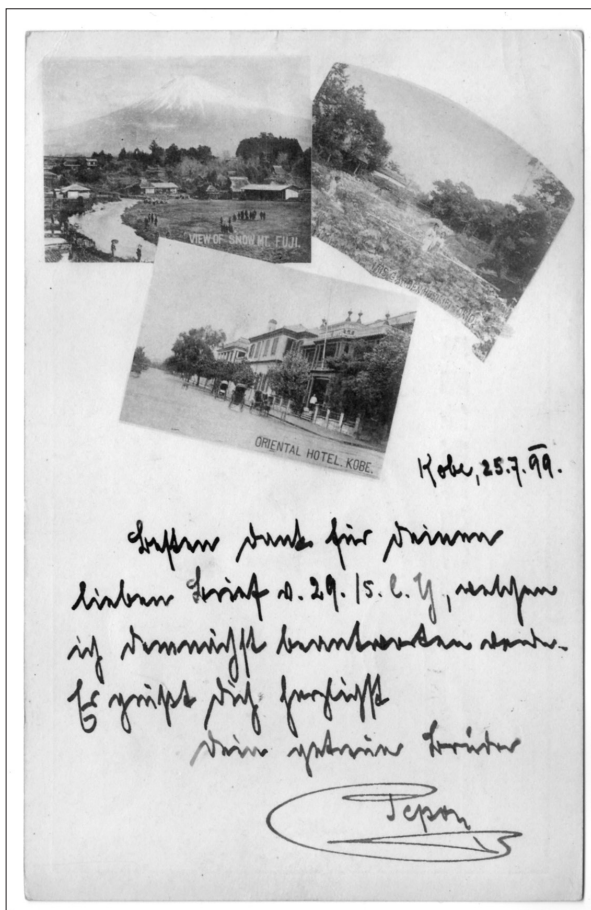 VIEW OF SNOW MT. FUJI.
ORIENTAL HOTEL. KOBE.
Kobe, 25.7.99.
Besten Dank für Deinen
lieben Brief v. 29./5. l. J., welchen
ich demnächst beantworten werde.
Es grüßt Dich herzlichst
Dein getreuer Bruder